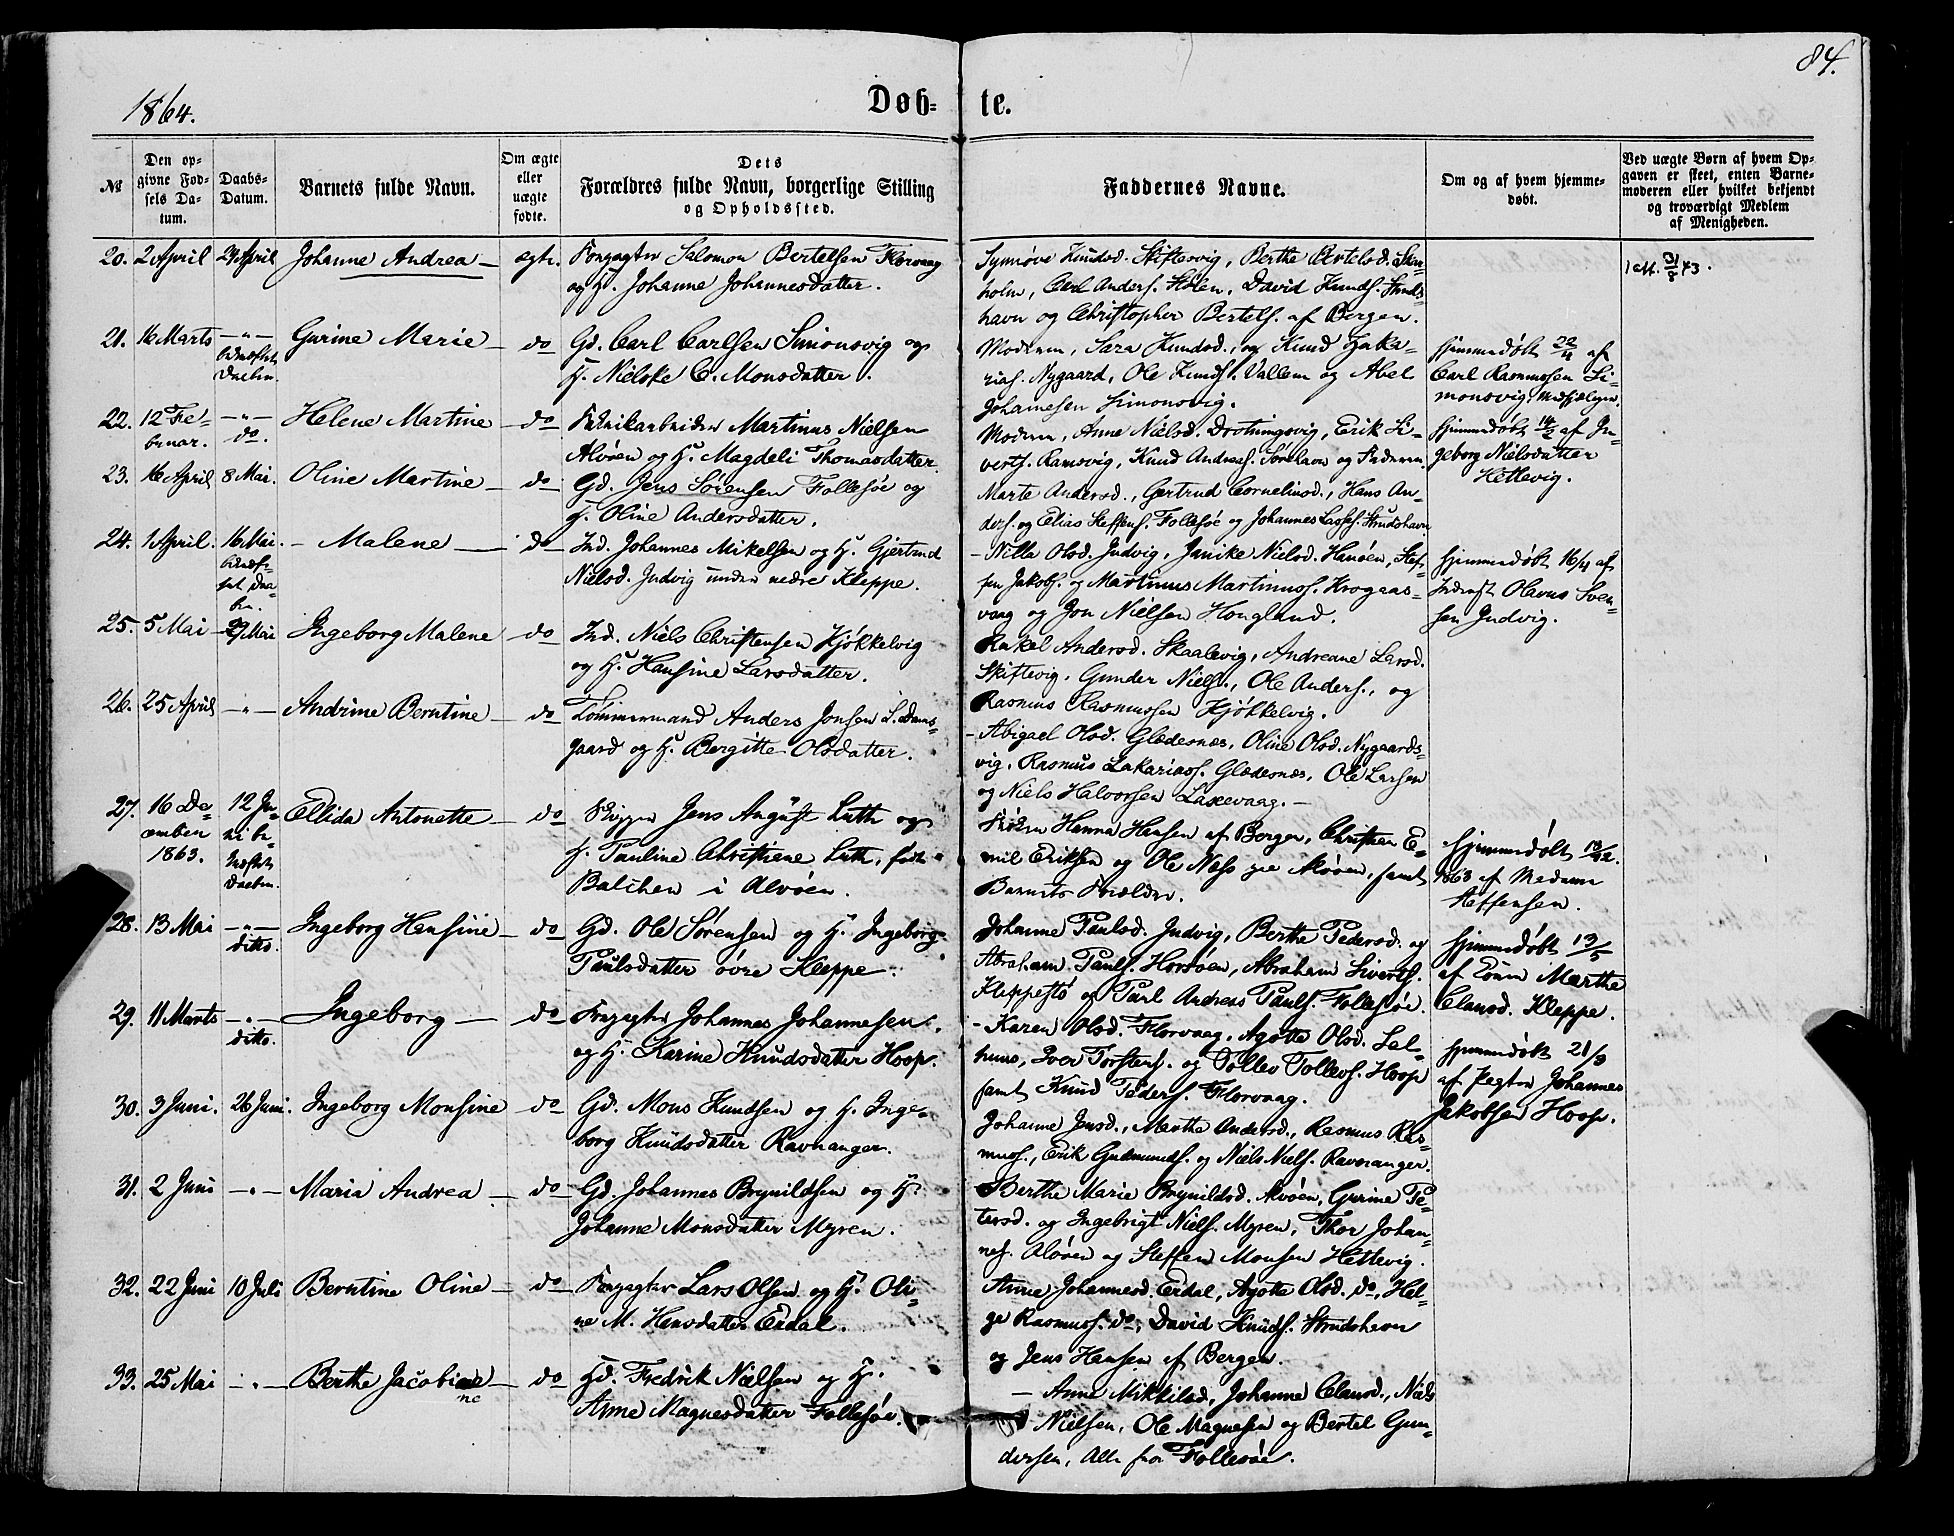 1864.
Døb-
te.
84.
№
Den op-
givne Fød-
sels Da-
tum.
Daabs-
Datum.
Barnets fulde Navn.
Om ægte
eller
uægte
fødte.
Dets
Forældres fulde Navn, borgerlige Stilling
og Opholdssted.
Faddernes Navne.
Om og af hvem hjemme-
døbt.
Ved uægte Børn af hvem Op-
gaven er skeet, enten Barne-
moderen eller hvilket bekjendt
og troværdigt Medlem
af Menigheden.
20. 2 April 24 April Johanne Andrea ægte. Forpagter Salomon Bertelsen Florvaag
og H. Johanne Johannesdatter.
Synnøve Knudsd. Skiftesvig, Berthe Bertelsd.
holm, Carl Anders. Holen, David Knuds. Struds-
havn og Christopher Bertels. af Bergen.
21. 16 Marts — " — Gurine Marie do Gd. Carl Carlsen Simonsvig og
bekræftet
Daaben.
H. Nielske C. Monsdatter.
Moderen, Sara Knudsd., og Knud Zaka-
rias. Nygaard, Ole Knuds. Vallem og Abel
Johannesen Simonsvig.
Hjemmedøbt 22/4 af
Carl Rasmussen Si-
monsvig,
22. 12 Fe-
bruar. — " —
do. Helene Martine do Fabrikarbeider Martinus Nielsen
Alvøen og H. Magdeli Thomasdatter.
Moderen, Anne Nielsd. Drotningsvig, Erik Si-
verts. Ramsvig, Knud Andreas. og Faderen.
Hjemmedøbt 14/2 af In-
geborg Nielsdatter
Hetlevig.
23. 16 April 8 Mai. Oline Martine do Gd. Jens Sørensen Follesøe og
H. Oline Andersdatter.
Marte Andersd., Gertrud Corneliusd., Hans An-
ders. og Elias Steffens. Follesøe og Johannes Lasses. Strudshavn
24. 1 April. 16 Mai.
bekræf-
tet Daa-
ben. Malene do Ind. Johannes Mikelsen og H. Gjertrud
Nielsd. Judvig under nedre Kleppe.
Nilla Olsd. Judvig, Janike Nielsd. Hanøen, Stef-
fen Jakobs. og Martinus Martinuss. Krogaas-
vaag og Jon Nielsen Hougland.
Hjemmedøbt 16/4 af
Inderst Olavus Sven-
sen Judvig.
25. 5 Mai 29 Mai Ingeborg Malene do Ind. Niels Christensen Kjøkkelvig
og H. Hansine Larsdatter.
Rakel Andersd. Skaalevig, Andreane Larsd.
Skiftevig, Gunder Niels., Ole Anders., og
Rasmus Rasmussen Kjøkkelvig.
26. 25 April — " — Andrine Berntine do Tømmermand Anders Jonsen L. Dams-
gaard og H. Bergitte Olsdatter.
Abigael Olsd. Gladesnes, Oline Olsd. Nygaards-
vig, Rasmus Zakarias. Gladesnes, Ole Larsen
og Niels Halvorsen Laxevaag.
27. 16 De-
cember
1863. 12 Ju-
ni be-
kræftet
Daaben. Ellida Antonette do Skipper Jens August Luth og
H. Pauline Christiene Luth, født
Balchen i Alvøen.
Frøken Hanna Hansen af Bergen, Christian E-
mil Eriksen og Ole Næss Alvøen, samt
Barnets Forældre.
Hjemmedøbt
1863 af Madame
Steffensen.
28. 13 Mai — " —
ditto. Ingeborg Hansine do Gd. Ole Sørensen og H. Ingeborg
Paulsdatter øvre Kleppe.
Johanne Paulsd. Judvig, Berthe Pedersd. og
Abraham Pauls. Horsøen, Abraham Siverts.
Kleppestø og Paul Andreas Pauls. Follesøe.
Hjemmedøbt 13/5
af Marthe
Clausd. Kleppe.
29. 11 Marts — " —
ditto. Ingeborg do Forpagter Johannes Johannesen
og H. Karine Knudsdatter Hoop.
Karen Olsd. Florvaag, Agotte Olsd. Sel-
huus, Iver Torstens. og Tollev Tollevs. Hoop
samt Knud Peders. Florvaag.
Hjemmedøbt 21/3
af Pagter Johannes
Jakobsen Hoop.
30. 3 Juni. 26 Juni. Ingeborg Monsine do Gd. Mons Knudsen og H. Inge-
borg Knudsdatter Ravnanger.
Johanne Jensd., Marthe Andersd., Rasmus Ras-
muss., Erik Gudmunds. og Niels Niels. Ravnanger.
31. 2 Juni — " — Maria Andrea do Gd. Johannes Brynildsen og H.
Johanne Monsdatter Myren.
Berthe Marie Brynildsd. Alvøen, Gurine Pe-
tersd. og Ingebrigt Niels. Myren, Thor Johan-
nes. Alvøen og Steffen Monsen Hetlevig.
32. 22 Juni 10 Juli Berntine Oline do Forpagter Lars Olsen og H. Oli-
ne M. Hansdatter Erdal.
Anne Johannesd. Erdal, Agotte Olsd. do, Hel-
ge Rasmuss. do, David Knuds. Strudshavn
og Jens Hansen af Bergen.
33. 25 Mai — " — Berthe Jacobine
ne do Gd. Fredrik Nielsen og H.
Anne Magnesdatter Follesøe.
Anne Mikkelsd., Johanne Clausd., Niels
Nielsen, Ole Magnesen og Bertel Gun-
dersen, Alle fra Follesøe.